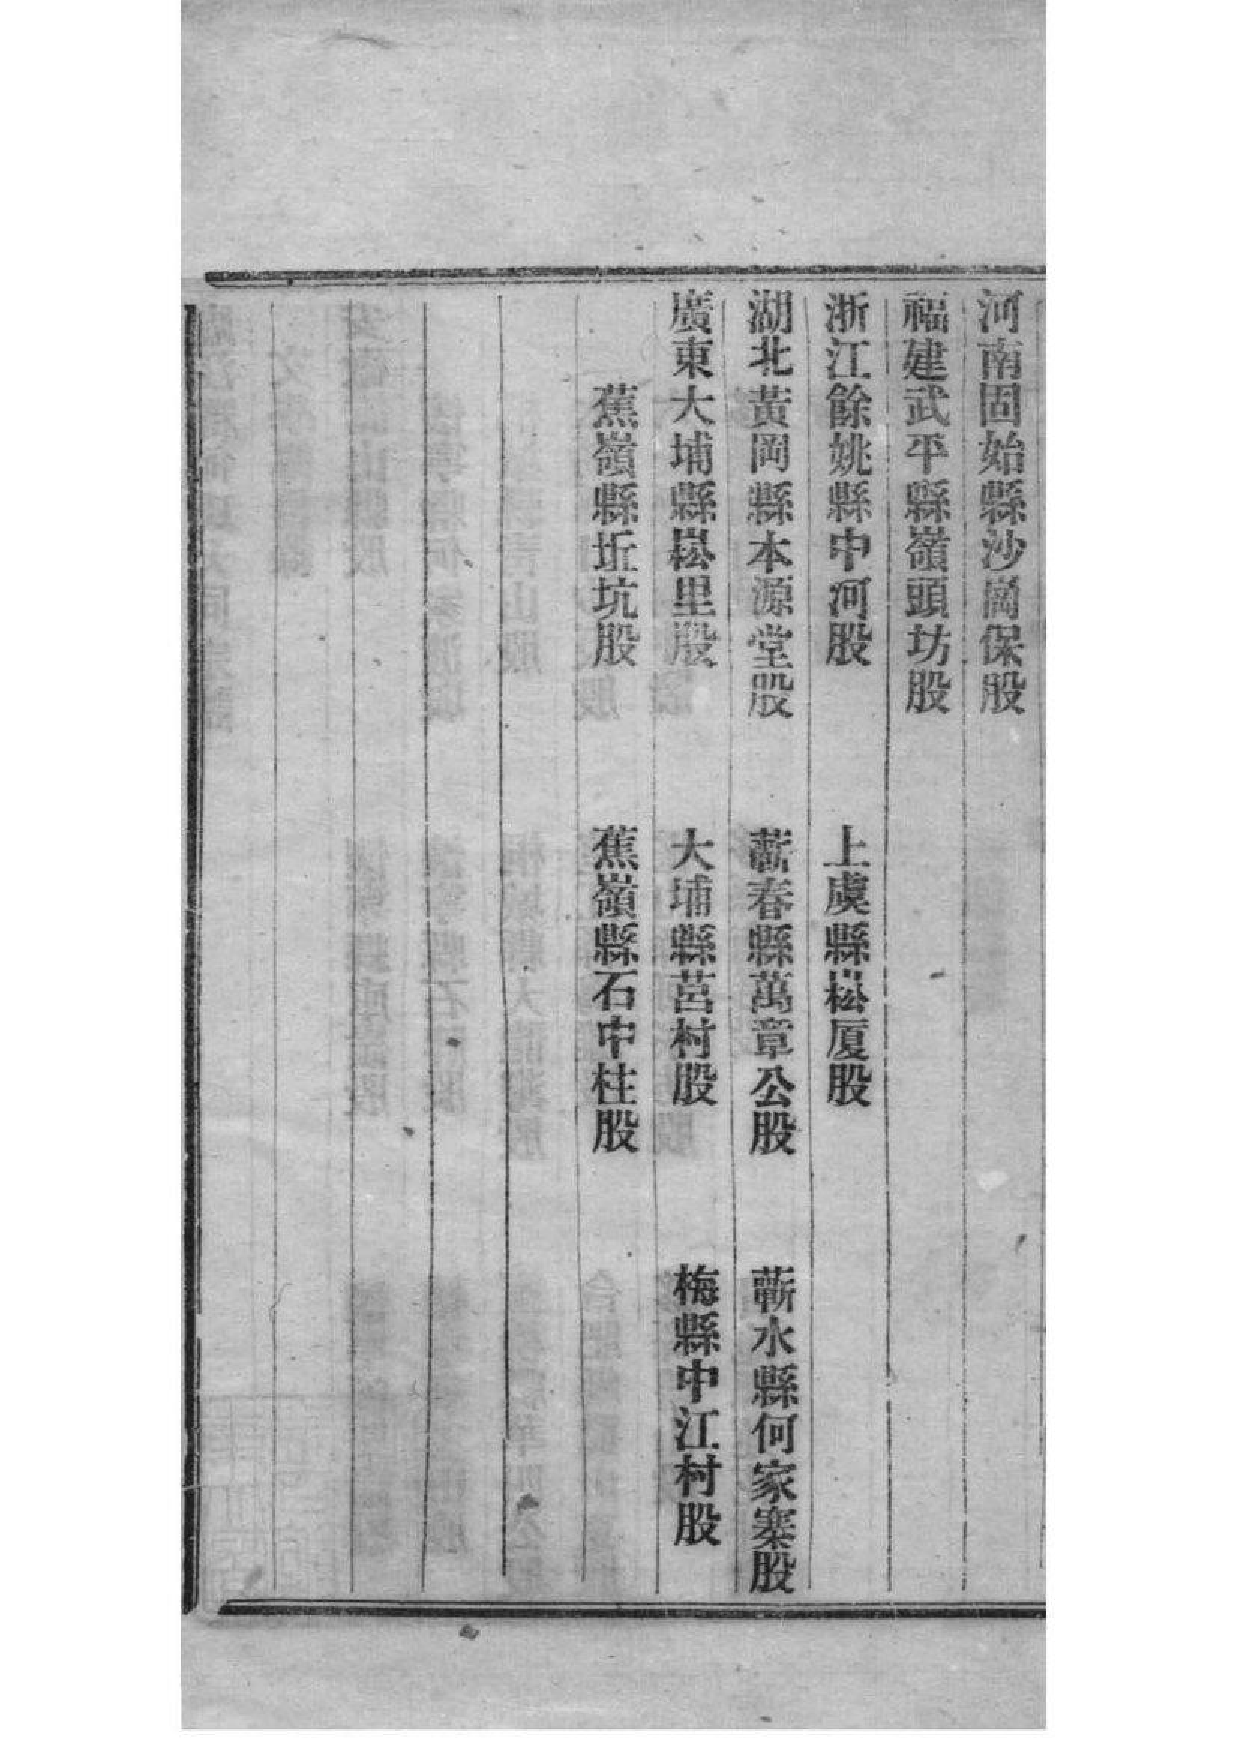 河南固始縣沙崗保股
福建武平縣嶺頭坊股
浙江餘姚縣中河股 上虞縣崧厦股
湖北黃岡縣本源堂股 蘄春縣萬章公股 蘄水縣何家寨股
廣東大埔縣崧里股 大埔縣莒村股 梅縣中江村股
蕉嶺縣坵坑股 蕉嶺縣石中柱股